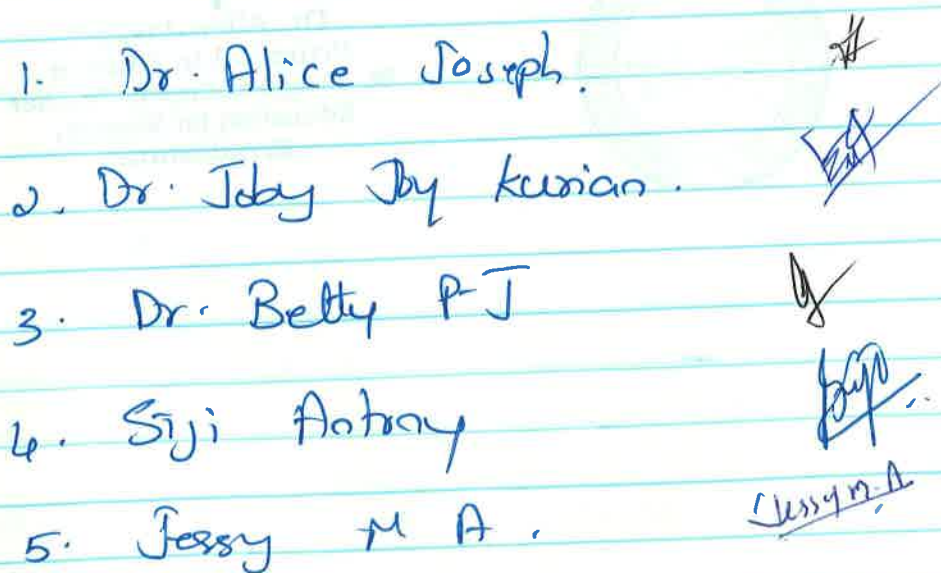 1. Dr. Alice Joseph.
2. Dr. Joby Joy Kurian.
3. Dr. Betty P J
4. Siji Antony
5. Jessy M A. Jessy M.A